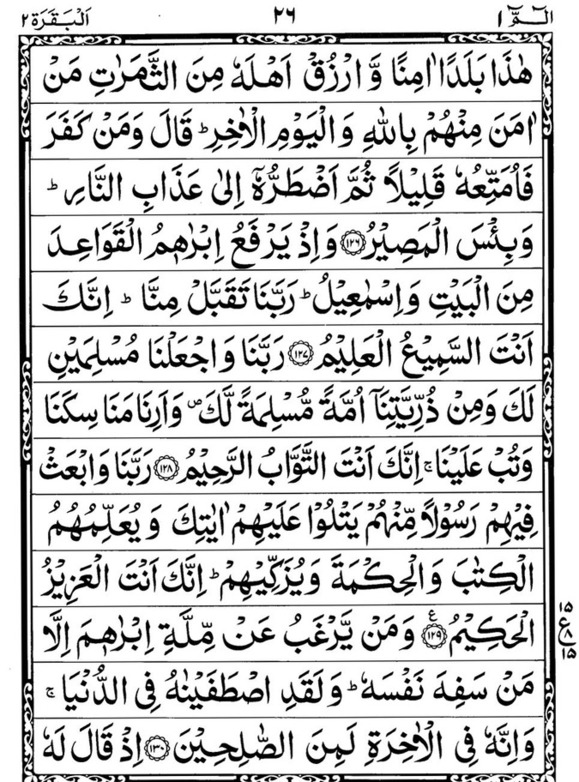 الٓمّٓ ١ ٢٦ اَلْبَقَرَة ٢
هٰذَا بَلَدًا اٰمِنًا وَّ ارْزُقْ اَهْلَهٗ مِنَ الثَّمَرٰتِ مَنْ
اٰمَنَ مِنْهُمْ بِاللّٰهِ وَ الْيَوْمِ الْاٰخِرِ ؕ قَالَ وَمَنْ كَفَرَ
فَاُمَتِّعُهٗ قَلِيْلًا ثُمَّ اَضْطَرُّهٗۤ اِلٰى عَذَابِ النَّارِ ؕ
وَ بِئْسَ الْمَصِيْرُ ﴿۱۲۶﴾ وَ اِذْ يَرْفَعُ اِبْرٰهٖمُ الْقَوَاعِدَ
مِنَ الْبَيْتِ وَ اِسْمٰعِيْلُ ؕ رَبَّنَا تَقَبَّلْ مِنَّا ؕ اِنَّكَ
اَنْتَ السَّمِيْعُ الْعَلِيْمُ ﴿۱۲۷﴾ رَبَّنَا وَ اجْعَلْنَا مُسْلِمَيْنِ
لَكَ وَ مِنْ ذُرِّيَّتِنَاۤ اُمَّةً مُّسْلِمَةً لَّكَ ۪ وَ اَرِنَا مَنَاسِكَنَا
وَ تُبْ عَلَيْنَا ۚ اِنَّكَ اَنْتَ التَّوَّابُ الرَّحِيْمُ ﴿۱۲۸﴾ رَبَّنَا وَ ابْعَثْ
فِيْهِمْ رَسُوْلًا مِّنْهُمْ يَتْلُوْا عَلَيْهِمْ اٰيٰتِكَ وَ يُعَلِّمُهُمُ
الْكِتٰبَ وَ الْحِكْمَةَ وَ يُزَكِّيْهِمْ ؕ اِنَّكَ اَنْتَ الْعَزِيْزُ
الْحَكِيْمُ ﴿۱۲۹﴾ ع وَ مَنْ يَّرْغَبُ عَنْ مِّلَّةِ اِبْرٰهٖمَ اِلَّا
۱۵
ع ۸
۱۵
مَنْ سَفِهَ نَفْسَهٗ ؕ وَ لَقَدِ اصْطَفَيْنٰهُ فِي الدُّنْيَا ۚ
وَ اِنَّهٗ فِي الْاٰخِرَةِ لَمِنَ الصّٰلِحِيْنَ ﴿۱۳۰﴾ اِذْ قَالَ لَهٗ